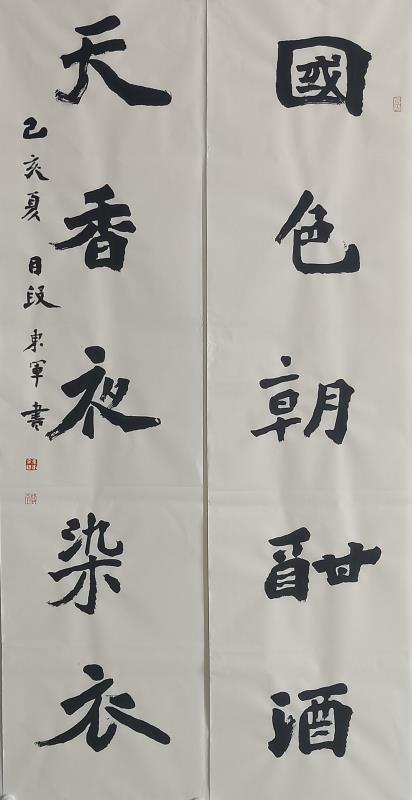 國色朝酣酒
天香夜染衣
己亥夏月段東軍書